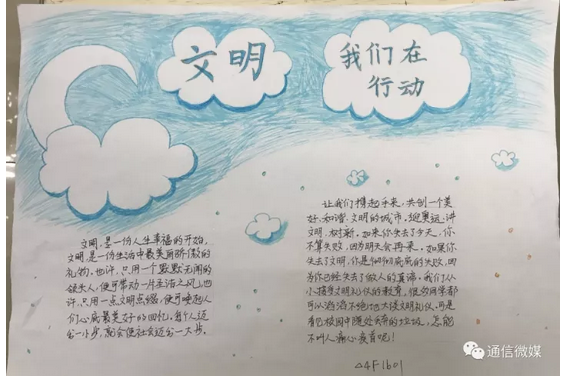 文明
我们在
行动
文明,是一份人生幸福的开始,
文明,是一份生活中最美而骄傲的
礼物,也许,只用一个默默无闻的
领头人,便可带动一片生活之风;也
许,只用一点文明点缀,便可唤起人
们心底最美好的回忆,每个人迈
出一小步,就会使社会迈出一大步。
让我们携起手来,共创一个美
好、和谐、文明的城市,迎奥运、讲
文明、树新,如果你失去了今天,你
不算失败,因为明天会再来。如果你
失去了文明,你是彻彻底底的失败,因
为你已经失去了做人的真谛,我们从
小接受文明礼仪的教育,很多同学都
可以滔滔不绝地大谈文明礼仪,可是
看已校园中随处丢弃的垃圾,怎能
不叫人痛心疾首呢!
通信微媒